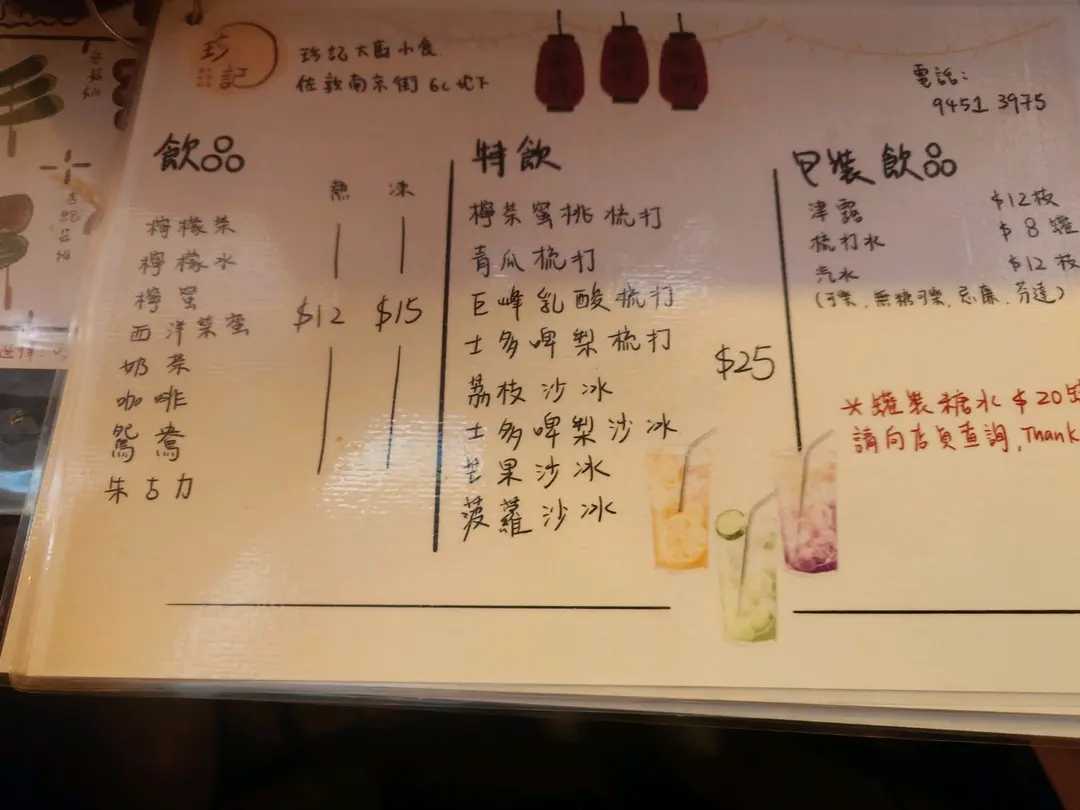 珍記
珍記大啟小食
佐敦南京街 6C 地下
電話:
9451 3975
飲品
熱 凍
檸檬茶
檸檬水
檸蜜
西洋菜蜜
$12 $15
奶茶
咖啡
鴛鴦
朱古力
特飲
檸茶蜜桃梳打
青瓜梳打
巨峰乳酸梳打
士多啤梨梳打
$25
荔枝沙冰
士多啤梨沙冰
芒果沙冰
菠蘿沙冰
包裝飲品
津露 $12枝
梳打水 $8罐
汽水 $12枝
(可樂、無糖可樂、忌廉、芬達)
*罐裝糖水 $20
請向店員查詢,Thank